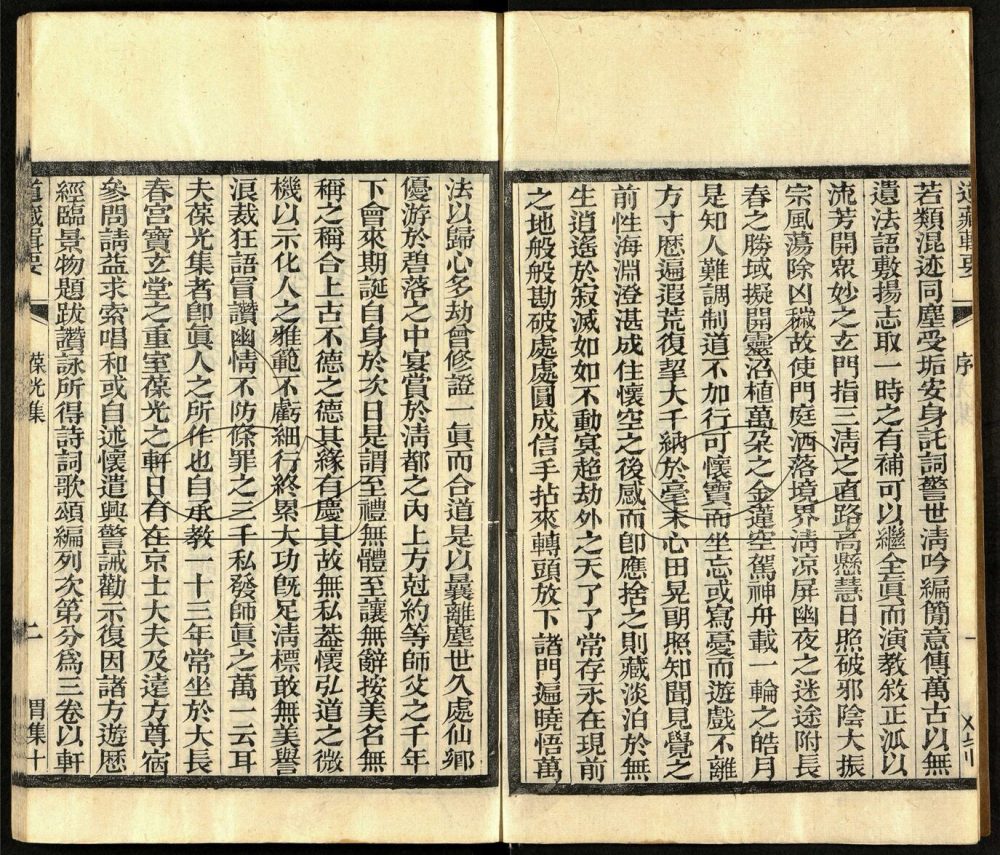 道藏輯要
序
一
若類混迹同塵受垢安身託詞警世淸吟編簡意傳萬古以無
遺法語敷揚志取一時之有補可以繼全眞而演教敍正派以
流芳開衆妙之玄門指三淸之直路高懸慧日照破邪陰大振
宗風蕩除凶穢故使門庭洒落境界淸凉屏幽夜之迷途附長
春之勝域擬開靈沼植萬朶之金蓮空駕神舟載一輪之皓月
是知人難調制道不加行可懷寶而坐忘或寫憂而遊戲不離
方寸歷遍遐荒復挈大千納於毫末心田晃朗照知聞見覺之
前性海淵澄湛成住懷空之後感而卽應捨之則藏淡泊於無
生逍遙於寂滅如如不動冥超劫外之天了了常存永在現前
之地般般勘破處處圓成信手拈來轉頭放下諸門遍曉悟萬
法以歸心多劫曾修證一眞而合道是以曩離塵世久處仙鄉
優游於碧落之中宴賞於淸都之內上方尅約等師父之千年
下會來期誕自身於次日是謂至禮無體至讓無辭按美名無
稱之稱合上古不德之德其緣有慶其故無私葢懷弘道之微
機以示化人之雅範不虧細行終累大功旣足淸標敢無美譽
浪裁狂語冒讚幽情不防條罪之三千私發師眞之萬一云耳
夫葆光集者卽眞人之所作也自承教一十三年常坐於大長
春宮寶玄堂之重室葆光之軒日有在京士大夫及達方尊宿
參問請益求索唱和或自述懷遣興警誡勸示復因諸方遊歷
經臨景物題跋讚詠所得詩詞歌頌編列次第分爲三卷以軒
道藏輯要
葆光集
二
胃集十